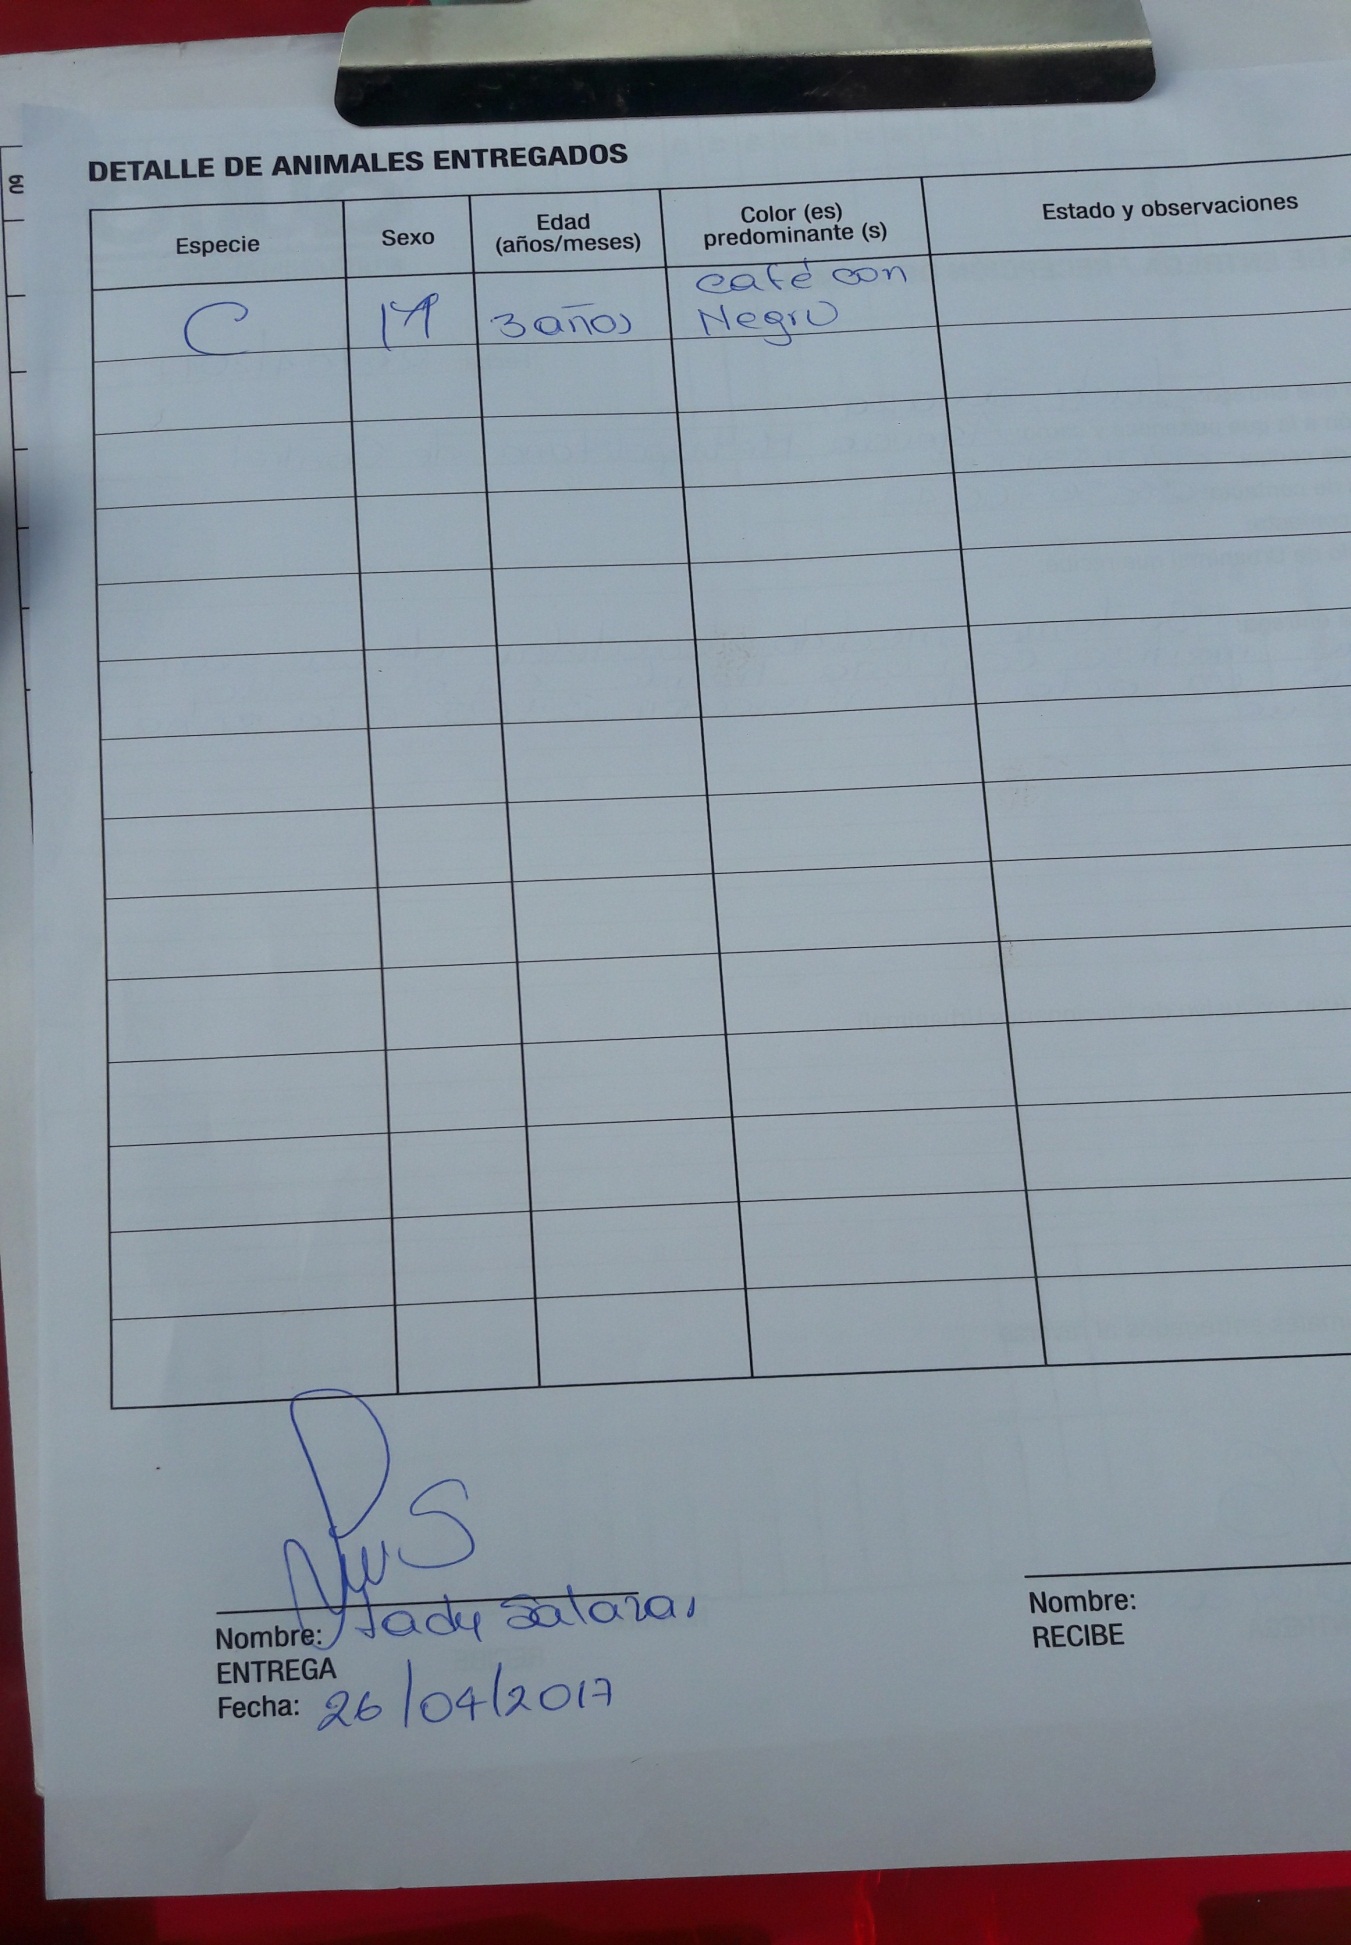 DETALLE DE ANIMALES ENTREGADOS
Especie Sexo Edad (años/meses) Color (es) predominante (s) Estado y observaciones
C M 3 años café con Negro
Nombre: Lady Salazar
ENTREGA
Fecha: 26/04/2017
Nombre:
RECIBE